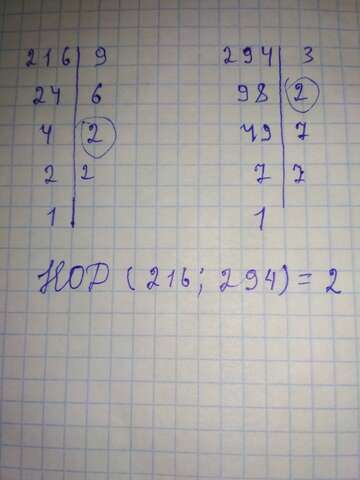 216 | 9 294 | 3
24 | 6 98 | 2
4 | 2 49 | 7
2 | 2 7 | 7
1 | 1
НОД (216; 294) = 2